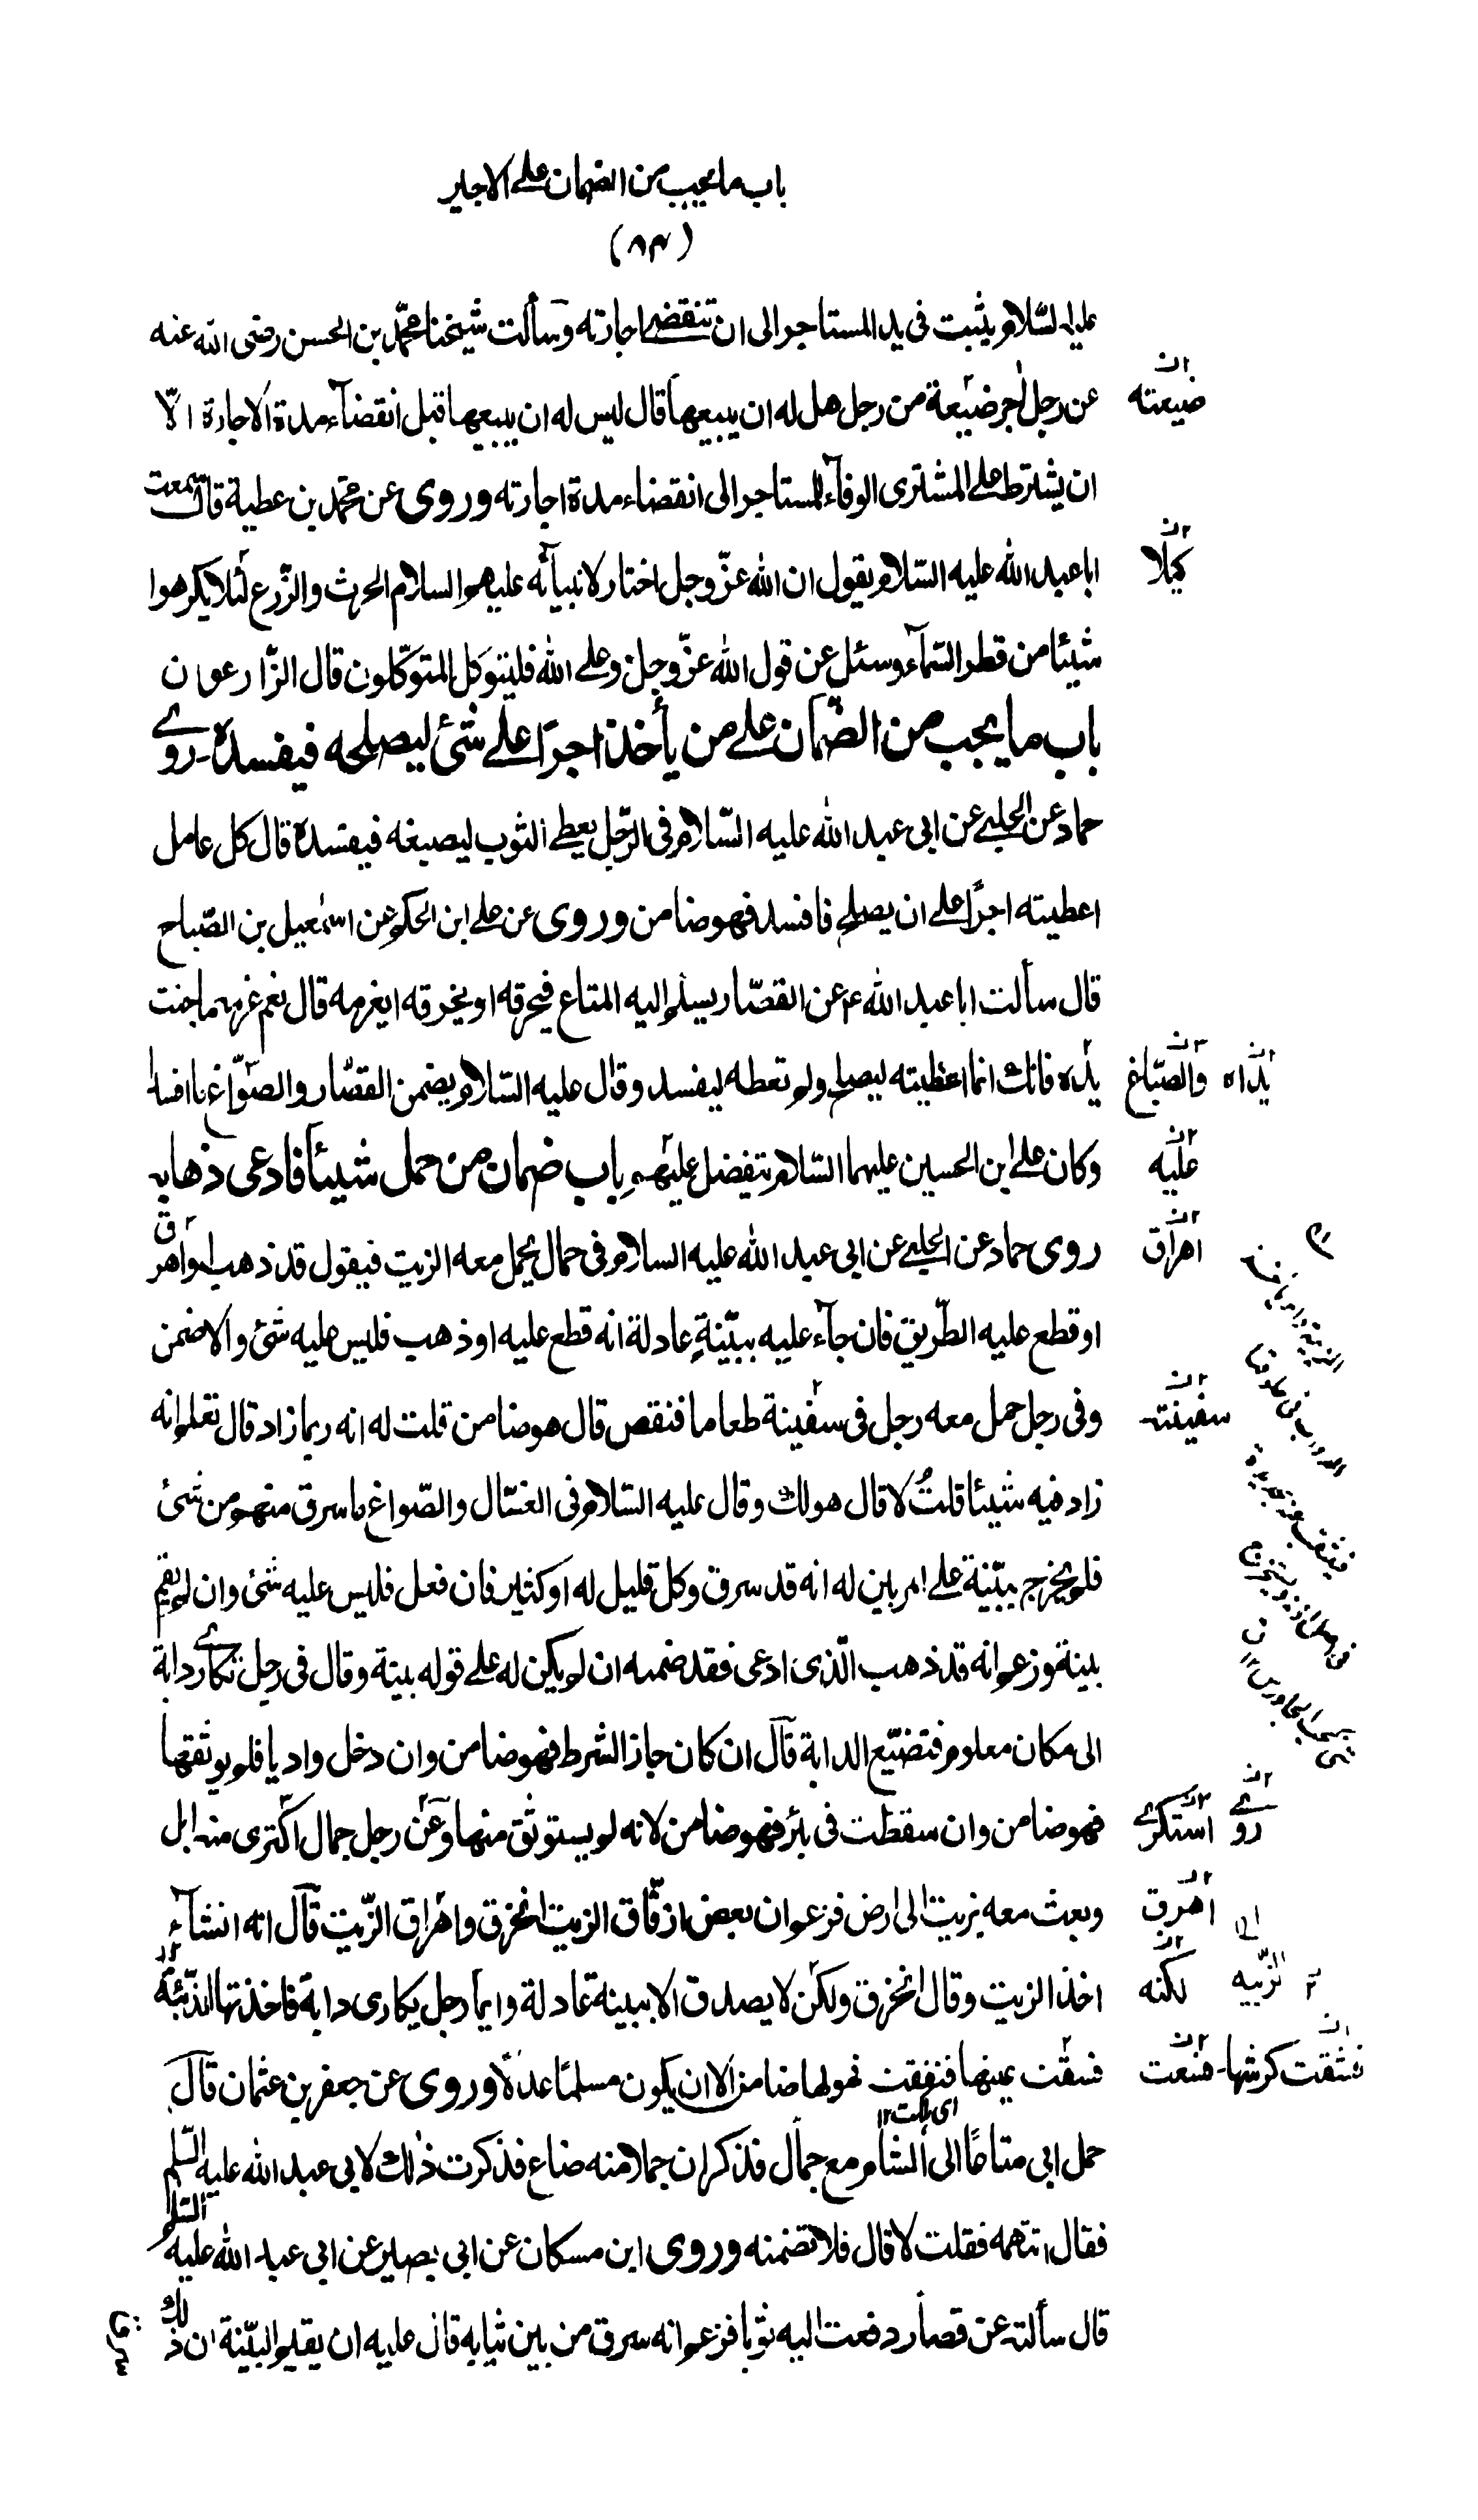 باب ما يجب من الضمان على الاجير
(٨٣)
عليه السّلام يثبت فى يد المستاجر الى ان تنقضى اجارته وسألت شيخنا محمّد بن الحسن رضى الله عنه
عن رجل اجر ضيعة من رجل هل له ان يبيعها قال ليس له ان يبيعها قبل انقضآء مدة الاجارة الّا
ضيعته
ان يشترط على المشترى الوفآء للمستاجر الى انقضاء مدة اجارته وروى عن محمّد بن عطية قال سمعت
ابا عبد الله عليه السّلام يقول ان الله عزّ وجل اختار لانبيآئه عليهم السلام الحرث والزّرع لئلا يكرهوا
كيلا
شيئا من قطر السّمآء وسئل عن قول الله عزّ وجل وعلى الله فليتوكل المتوكّلون قال الزّارعون
باب ما يجب من الضّمان على من يأخذ اجرًا على شئ ليصلحه فيفسده روى
حماد عن الحلبى عن ابى عبد الله عليه السّلام فى الرّجل يعطى الثوب ليصبغه فيفسده قال كل عامل
اعطيته اجرًا على ان يصلح فافسد فهو ضامن وروى عن على ابن الحكم عن اسمٰعيل بن الصّباح
قال سألت ابا عبد الله ع عن القصّار يسلم اليه المتاع فيحرقه او يخرقه ايغرمه قال نعم غرمه ما جنت
يده فانك انما اعطيته ليصلح ولم تعطه ليفسد وقال عليه السّلام يضمن القصّار والصوّاغ ما افسدا
والصّبّاغ
يداه
وكان على ابن الحسين عليهما السّلام يتفضل عليهم باب ضمان من حمل شيئا فادعى ذهابه
عليه
روى حماد عن الحلبى عن ابى عبد الله عليه السلام فى حمال يحمل معه الزيت فيقول قد ذهب او اهرق
اهراق
او قطع عليه الطّريق فان جآء عليه ببيّنةٍ عادلة انه قطع عليه او ذهب فليس عليه شئ والا ضمن
وفى رجل حمل معه رجل فى سفينة طعاما فنقص قال هو ضامن قلت له انه ربما زاد قال تعلم انه
سفينته
زاد فيه شيئا قلتُ لا قال هو لك وقال عليه السّلام فى الغسّال والصّواغ ما سرق منهم من شئ
فلم يخرج ببيّنة على امر بين له انه قد سرق وكل قليل له او كثير فان فعل فليس عليه شئ وان لم يقم
بينة وزعم انه قد ذهب الّذى ادعى فقد ضمنه ان لم يكن له على قوله بينة وقال فى رجل تكارى دابة
الى مكان معلوم فتضيّع الدابة قال ان كان جاز الشرط فهو ضامن وان دخل واديا فلم يوثقها
فهو ضامن وان سقطت فى بئر فهو ضامن لانه لم يستوثق منها وعن رجل جمال اكترى منه ابل
استكرى
روى
وبعث معه بزيت الى ارض فزعم ان بعض ازقّاق الزيت انخرق واهراق الزّيت قال انه ان شآء
اهرق
اخذ الزيت وقال انخرق ولكن لا يصدق الا ببينة عادلة وايما رجل يكارى دابة فاخذتها الذّئبة
لكنه
فشقت عينها فنفقت فهو لها ضامن الا ان يكون مسلمًا عدلًا وروى عن جعفر بن عثمان قال
فشقت كرشها
حمل ابى متاعًا الى الشام مع جمال فذكر ان حملا منه ضاع فذكرت ذٰلك لابى عبد الله عليه السّلم
فقال اتتهمه فقلت لا قال فلا تضمنه وروى ابن مسكان عن ابى بصير عن ابى عبد الله عليه السّلم
قال سألته عن قصار دفعت اليه ثوبا فزعم انه سرق من بين ثيابه قال عليه ان يقيم البيّنة ان ذلك